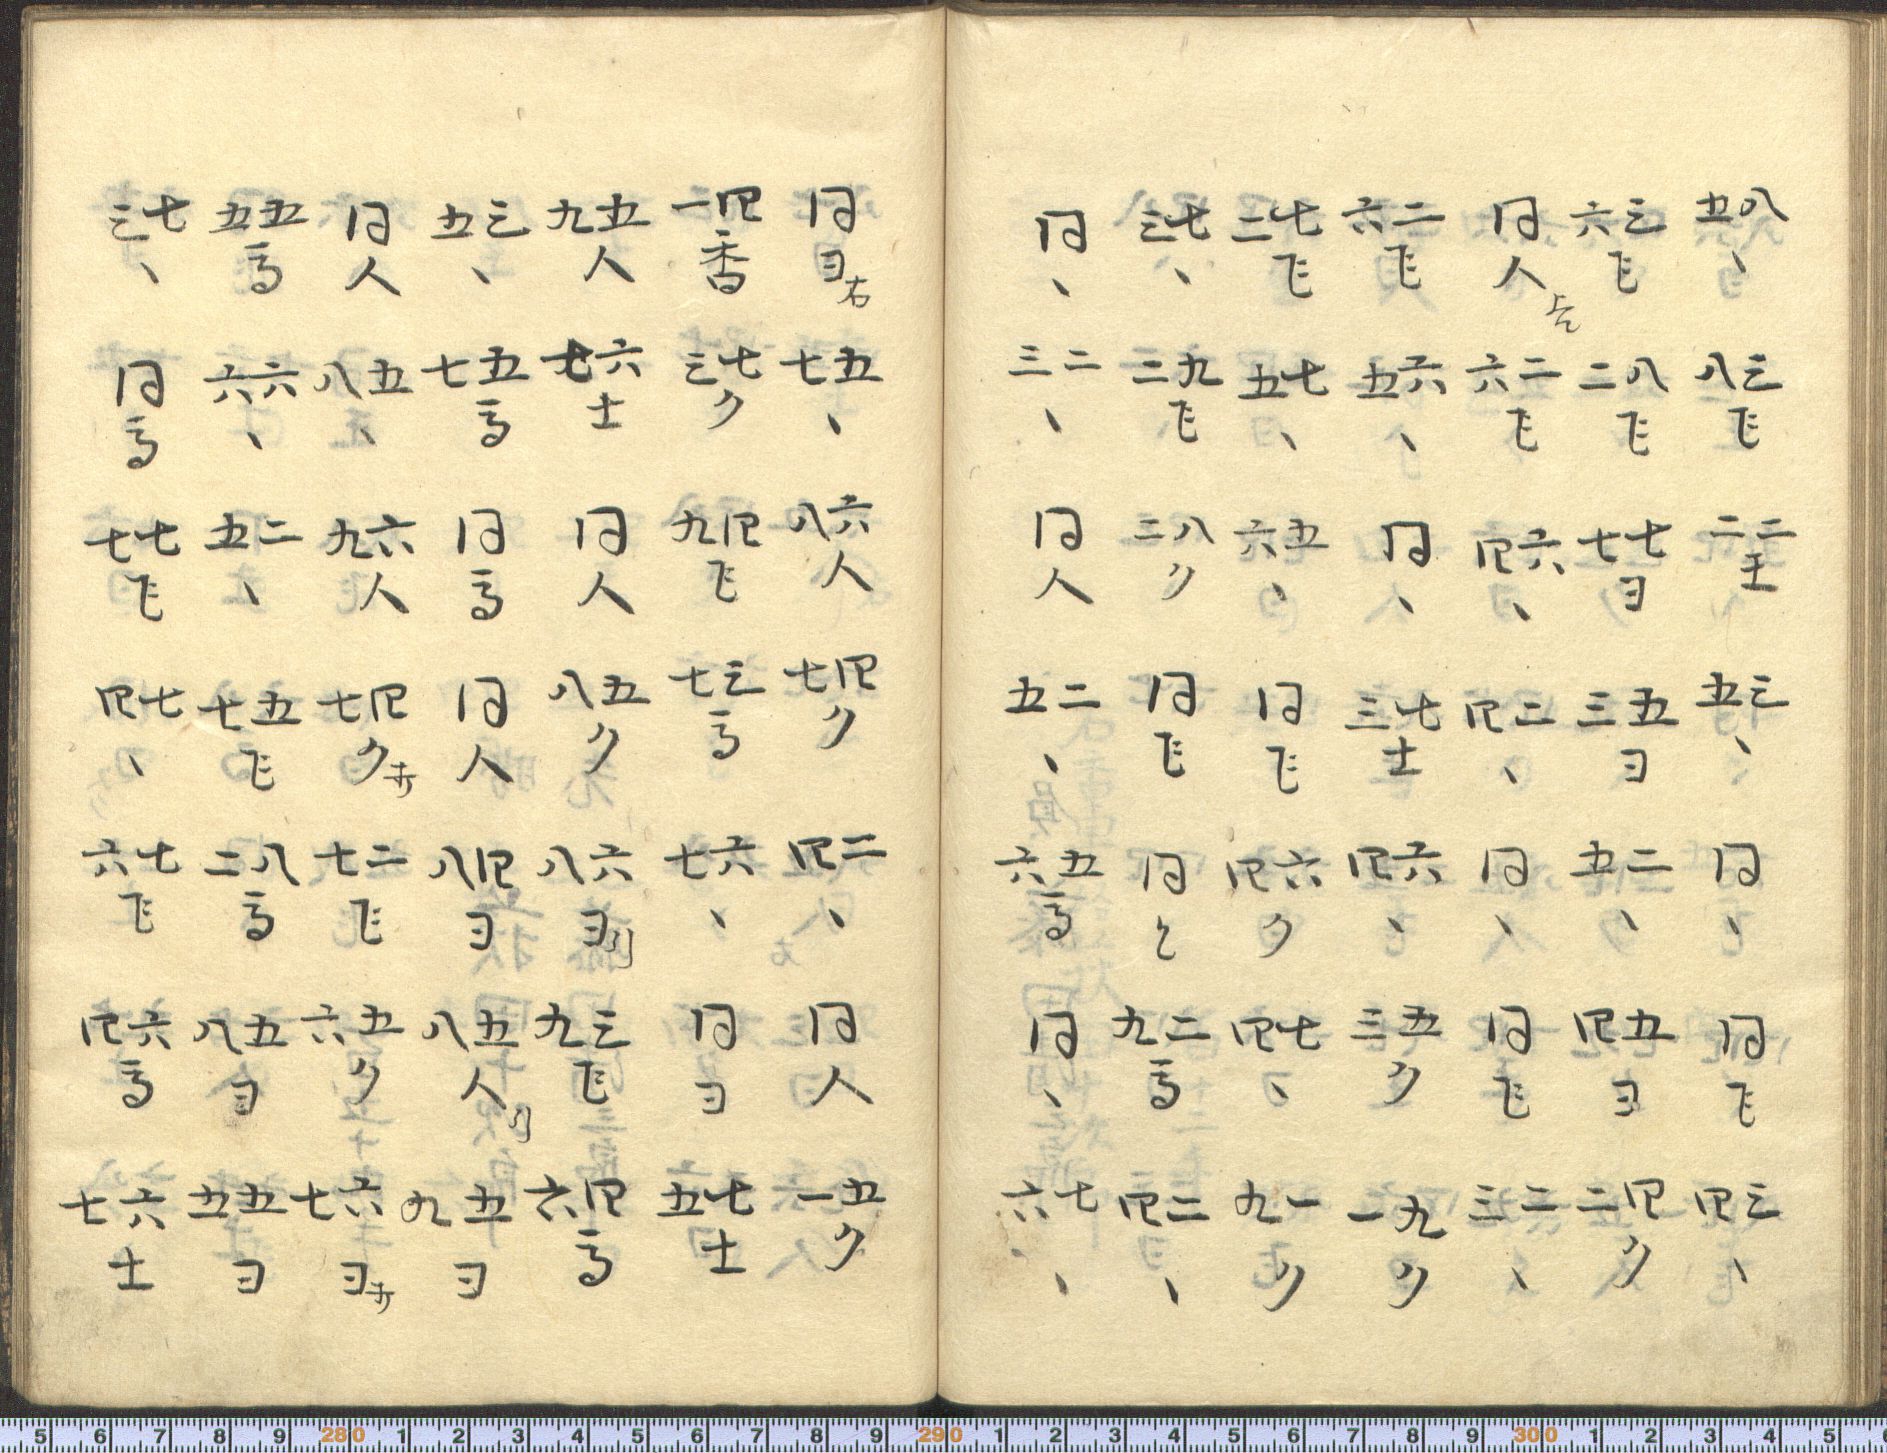 八五、 三八飞 二二王 三五、 同、 同飞 三四、
三六飞 八二飞 七七ヨ 五三ヨ 二五、 五四ヨ 四二ク
同人左 二六飞 六四、 三四、 同、 同飞 二三、
二六飞 六五、 同、 七三士 六四、 五三ク 九一ク
七二飞 七五、 五六、 同飞 六四ク 七四、 一九ク
七三、 九二飞 八二ク 同飞 同と 二九马 二四、
同、 二三、 同人 二五、 五六马 同、 七六、
同ヨ右 五七、 六八人 四七ク 二四、 同人 五一ク
四一香 七三ク 四九飞 三七马 六七、 同ヨ 七五士
五九人 六七士 同人 五八ク 六八ヨ引 三九飞 四六马
三五、 五七马 同马 同人 四八ヨ 五八人引 五九ヨ
同人 五八、 六九人 四七ク打 二七飞 五六ク 六七ヨ打
五五马 六六、 二五、 五七飞 八二马 五八ヨ 五五ヨ
七三、 同马 七七飞 七四、 七六飞 六四马 六七士